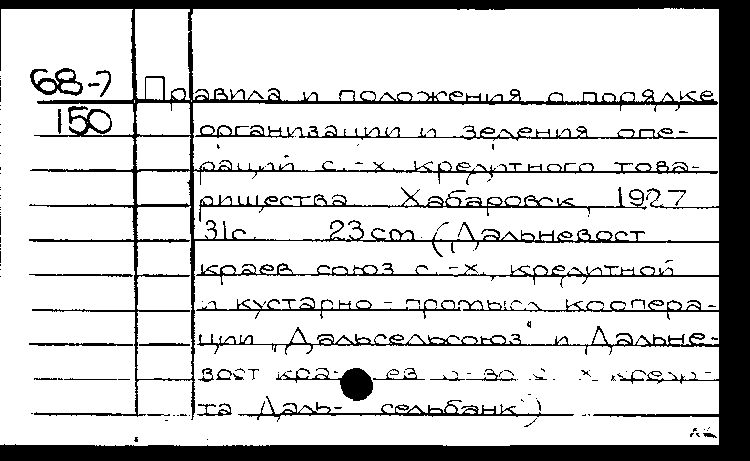 68-7 Правила и положения о порядке
150 организации и зеления опе-
раций с.-х. кредитного това-
рищества Хабаровск, 1927
31с. 23 cm (Дальневост
краев союз с.-х., кредитной
и кустарно-промысл коопера-
ции „Дальсельсоюз" и Дальне-
вост кра- ев о-во с. х креди-
та Даль- сельбанк)